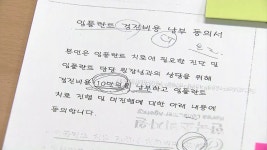 임플란트 검진비용 납부 동의서
본인은 임플란트 치료에 필요한 진단 및
임플란트 담당 원장님과의 상담을 위해
검진비용 10만원을 납부하고 임플란트
치료 진행 및 미진행에 대한 아래 내용에
동의합니다.